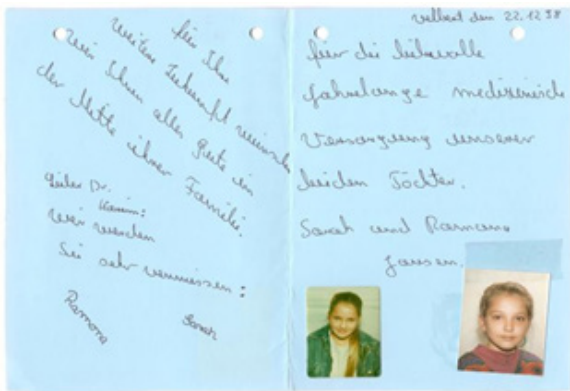 für Ihre
weitere Zukunft wünschen
wir Ihnen alles gute in
der Mitte ihrer Familie.
Lieber Dr.
Karim:
wir werden
Sie sehr vermissen:
Ramona
Sarah
velbert den 22.12.98
für die liebevolle
Jahrelange medizinische
Versorgung unserer
beiden Töchter.
Sarah und Ramona
Jansen.